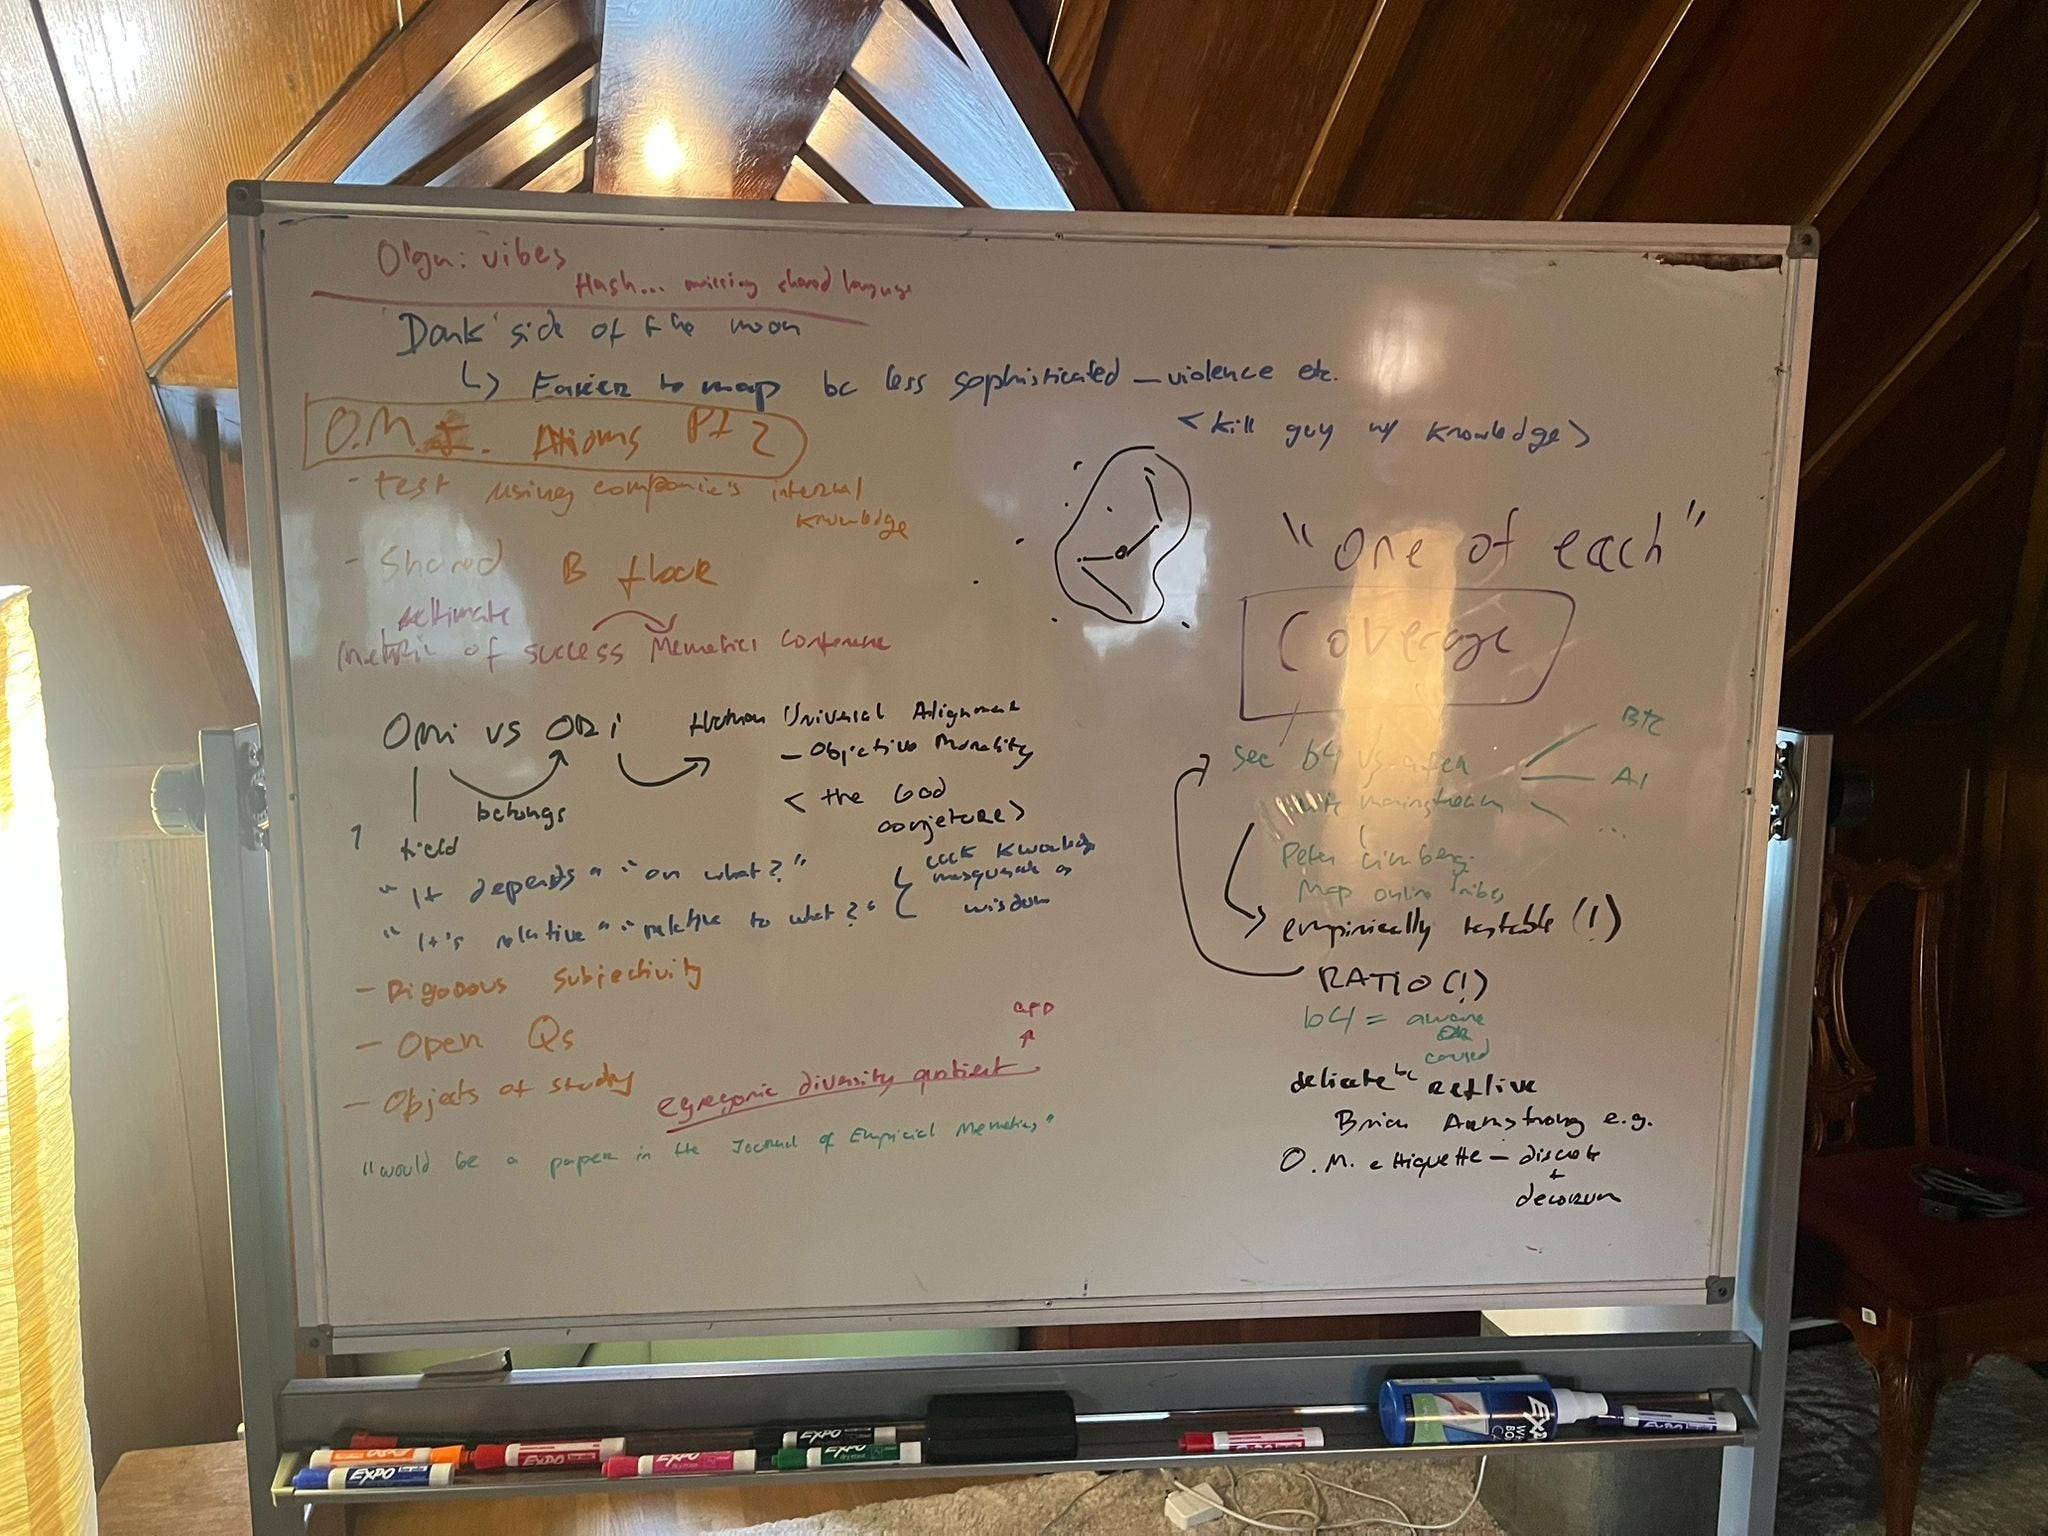 Olga: vibes
Hash... missing shared language
"Dark" side of the moon
↳ Easier to map bc less sophisticated – violence etc.
<kill guy w/ knowledge>
O.M. Axioms Pt 2
- test using companie's internal
knowledge
- Shared B flock
ultimate
metric of success Memetics conference
"one of each"
Coverage
OMi vs ORi
belongs
field
?
Human Universal Alignment
- Objective Morality
< the Good
conjecture>
"It depends" "on what?"
"It's relative" "relative to what?"
knowledge
masquerade as
wisdom
- Rigorous subjectivity
- Open Qs
- Objects of study
egregoric diversity quotient
app
"would be a paper in the Journal of Empirical Memetics"
see b4 vs after
mainstream
Btc
AI
...
Peter Limberg
Map online tribes
empirically testable (!)
RATIO (!)
b4 = aware
OR
caused
delicate bc
Brian Armstrong e.g.
O.M. ettiquette –
+
decorum
EXPO
EXPO
EXPO
EXPO
EXPO
EXPO